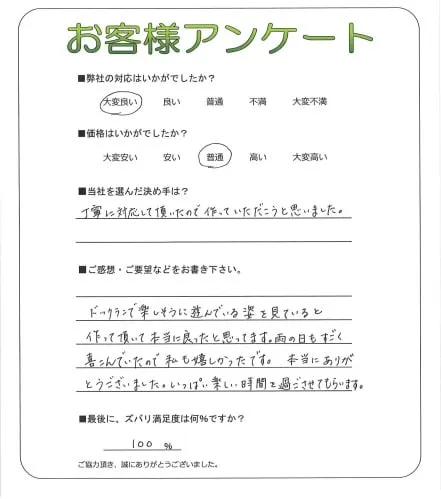 お客様アンケート
■弊社の対応はいかがでしたか？
大変良い 良い 普通 不満 大変不満
■価格はいかがでしたか？
大変安い 安い 普通 高い 大変高い
■当社を選んだ決め手は？
丁寧に対応して頂いたので作っていただこうと思いました。
■ご感想・ご要望などをお書き下さい。
ドックランで楽しそうに遊んでいる姿を見ていると
作って頂いて本当に良ったと思ってます。雨の日もすごく
喜こんでいたので私も嬉しかったです。 本当にありが
とうございました。いっぱい楽しい時間を過ごさせてもらいます。
■最後に、ズバリ満足度は何％ですか？
100 %
ご協力頂き、誠にありがとうございました。